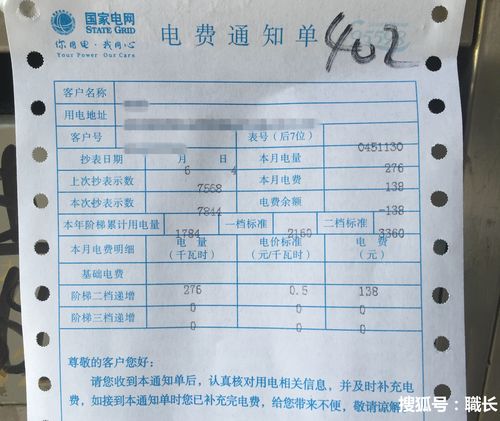 国家电网
STATE GRID
你用电·我用心
Your Power Our Care
电费通知单
402
客户名称
用电地址
客户号 表号(后7位) 0451130
抄表日期 6 月 4 日 本月电量 276
上次抄表示数 7568 本月电费 138
本次抄表示数 7844 电费余额 -138
本年阶梯累计用电量 1784 一档标准 2160 二档标准 3360
本月电费明细 电量(千瓦时) 电价标准(元/千瓦时) 电费(元)
基础电费
阶梯二档递增 276 0.5 138
0 0 0
阶梯三档递增 0 0 0
尊敬的客户您好:
请您收到本通知单后,认真核对用电相关信息,并及时补充电
费,如接到本通知单时您已补充完电费,给您带来不便,敬请谅解
搜狐号:職长